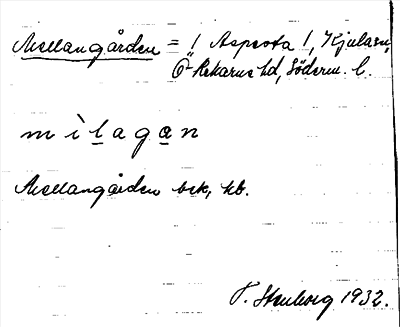 Mellangården = ! Aspesta !, Kjulasn,
Ö-Rekarne hd, Söderm. l.
m ì l a g a n
Mellangården bek, kb.
F. Stenborg 1932.